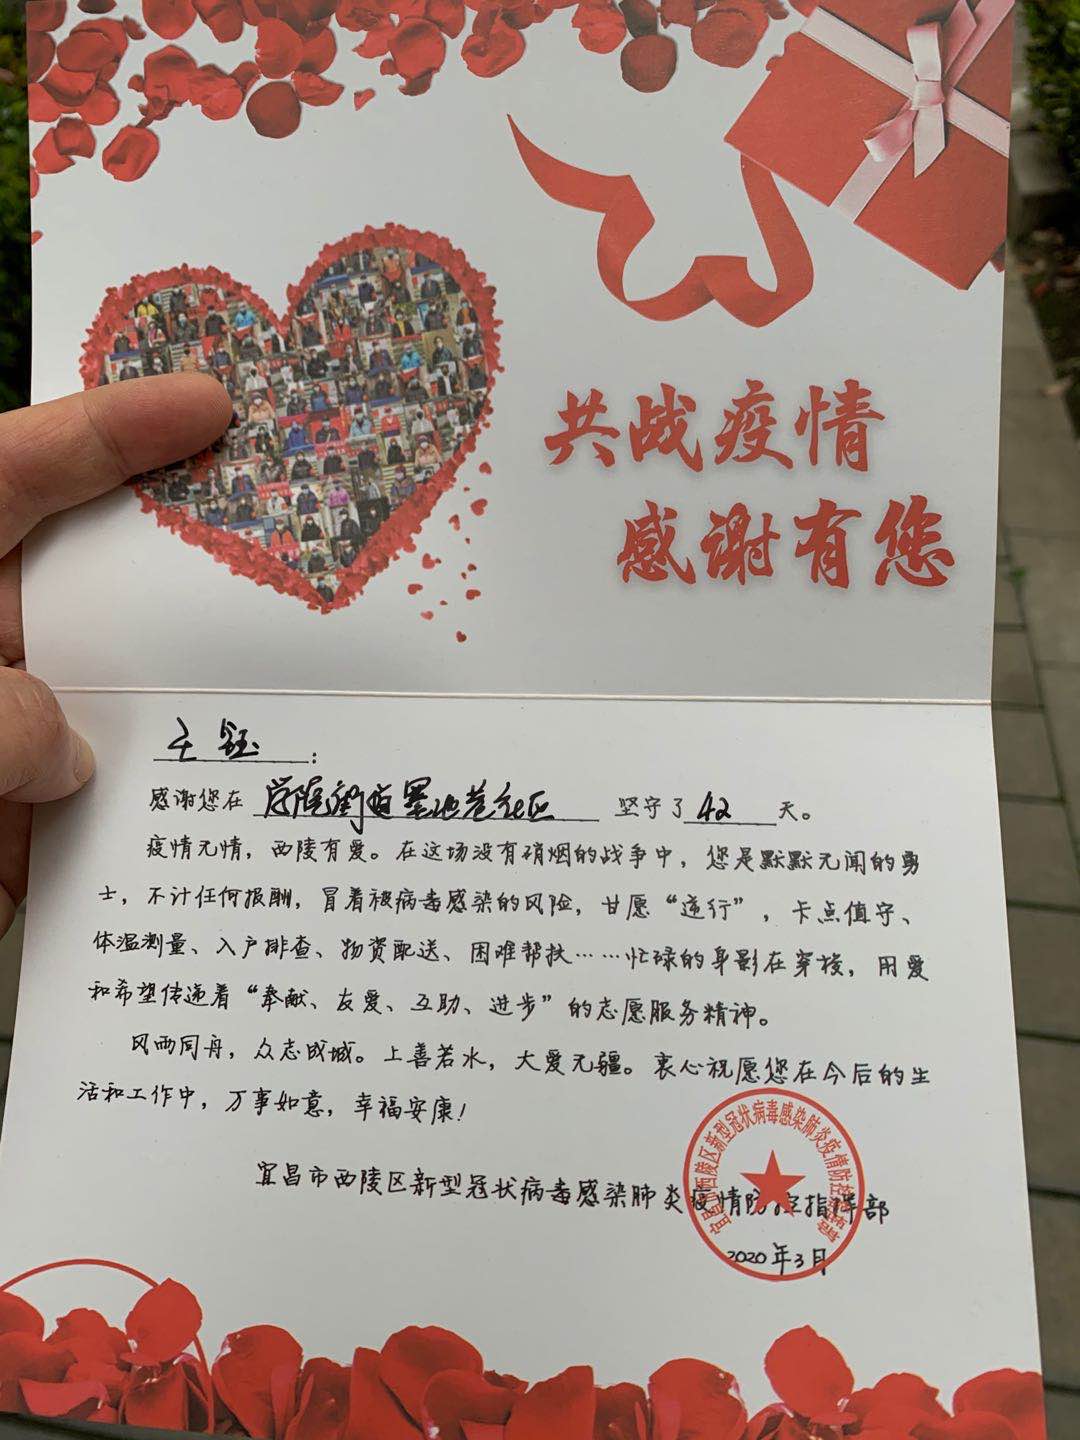 共战疫情
感谢有您
王钰：
感谢您在 学院街道墨池巷社区 坚守了 42 天。
疫情无情，西陵有爱。在这场没有硝烟的战争中，您是默默无闻的勇
士，不计任何报酬，冒着被病毒感染的风险，甘愿“逆行”，卡点值守、
体温测量、入户排查、物资配送、困难帮扶……忙碌的身影在穿梭，用爱
和希望传递着“奉献、友爱、互助、进步”的志愿服务精神。
风雨同舟，众志成城。上善若水，大爱无疆。衷心祝愿您在今后的生
活和工作中，万事如意，幸福安康！
宜昌市西陵区新型冠状病毒感染肺炎疫情防控指挥部
2020年3月
宜昌市西陵区新型冠状病毒感染肺炎疫情防控指挥部